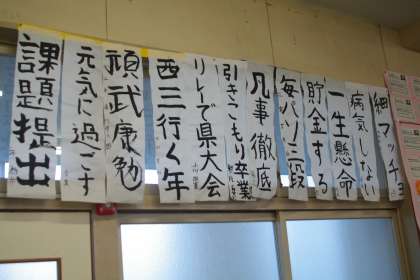 網マッチョ
病気しない
一生懸命
貯金する
毎パソ二段
凡事徹底
引きこもり卒業
リレーで県大会
西三行く年
頑武康勉
元気に過ごす
課題提出